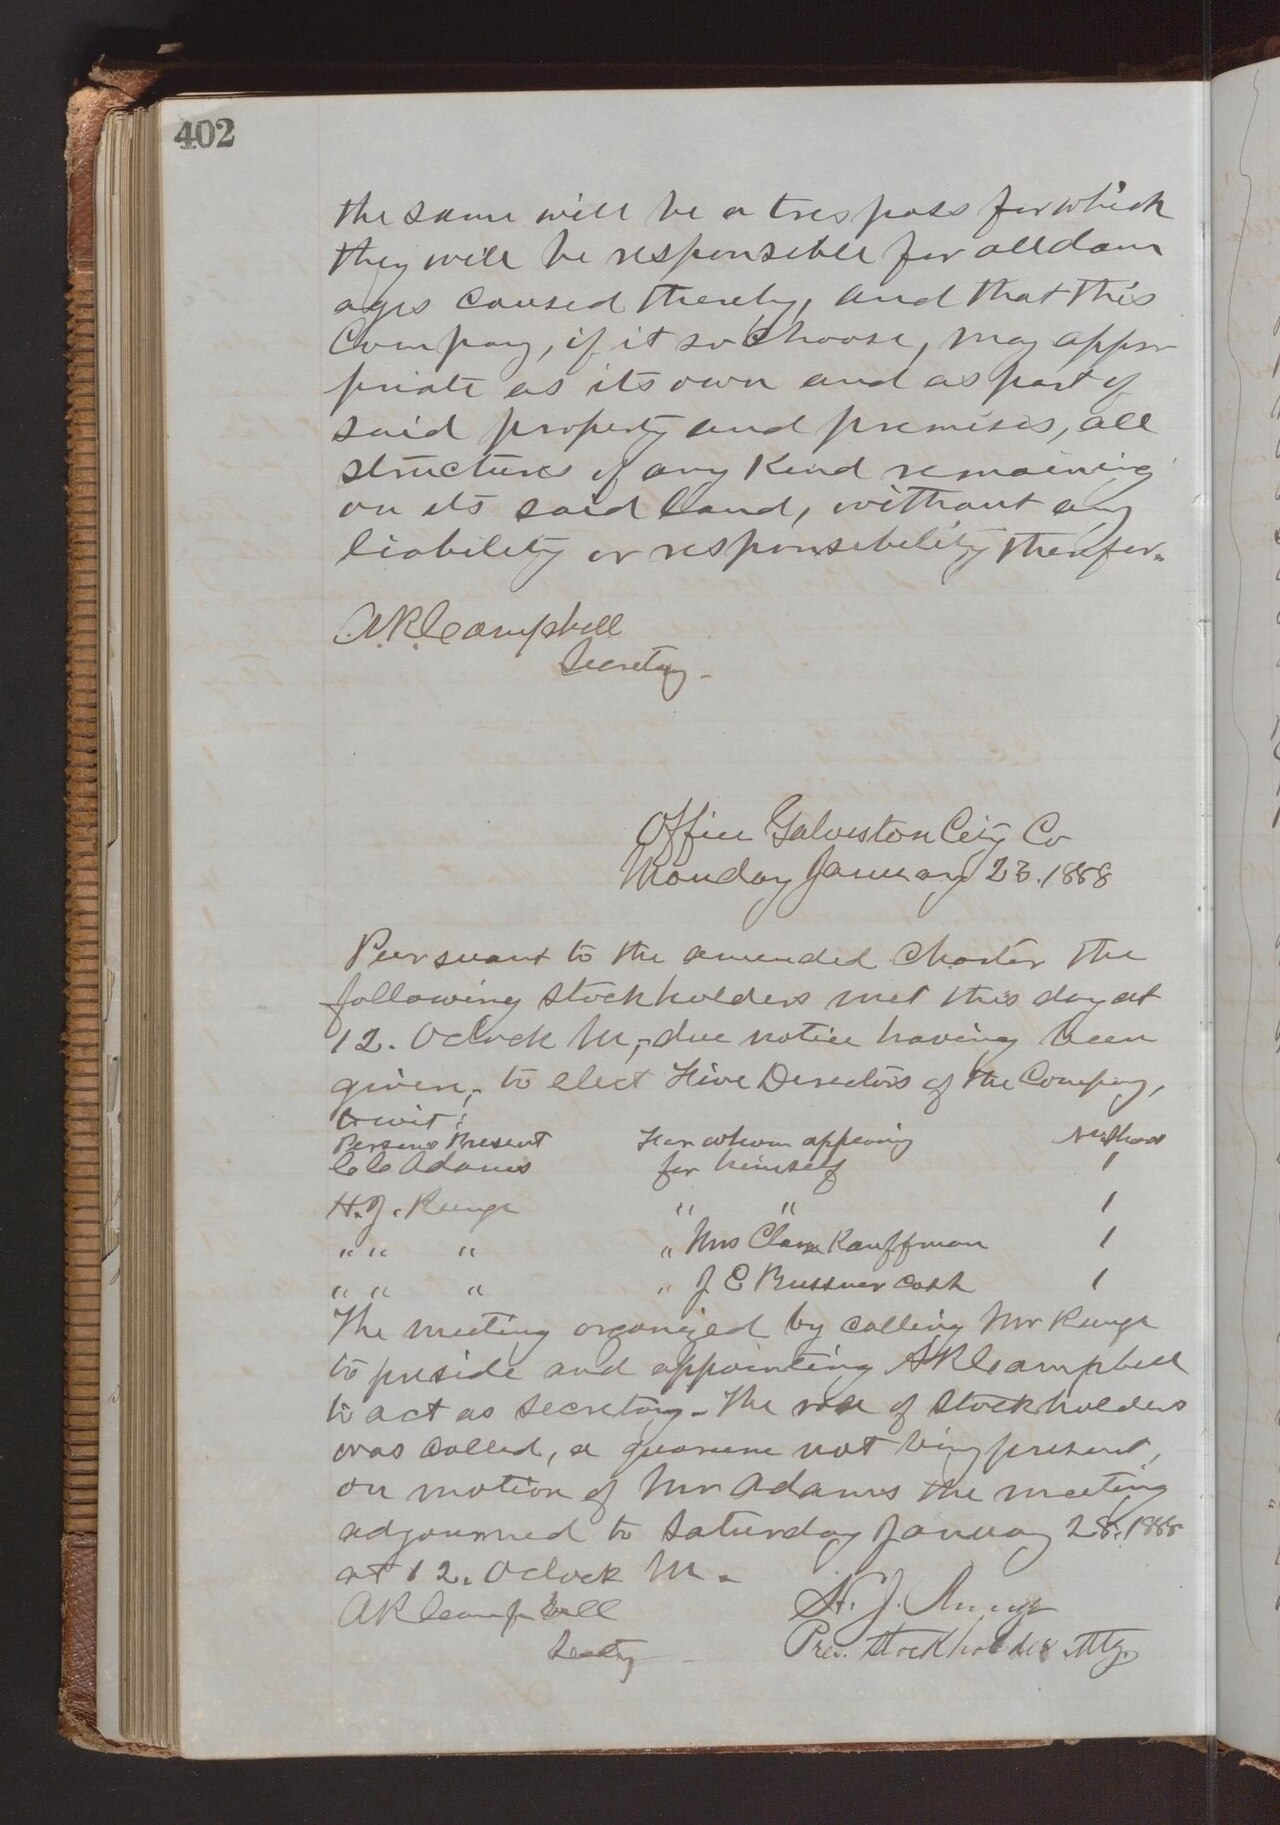 402
the same will be a trespass for which
they will be responsible for all dam
ages caused thereby, and that this
Company, if it so choose, may appro
priate as its own and as part of
said property and premises, all
structures of any kind remaining
on its said land, without any
liability or responsibility therefor.
A.R. Campbell
Secretary.
Office Galveston City Co
Monday January 23. 1888
Pursuant to the amended Charter the
following stockholders met this day at
12. Oclock M, due notice having been
given, to elect Five Directors of the Company,
to wit:
Persons Present For whom appearing No. Shares
C C Adams for himself 1
H. J. Runge " " 1
" " " " Mrs Clara Kauffman 1
" " " " J E 1
The meeting organized by calling Mr Runge
to preside and appointing A R Campbell
to act as Secretary. The role of stockholders
was called, a quorum not being present,
on motion of Mr Adams the meeting
adjourned to Saturday January 28. 1888
at 12. Oclock M.
A R Campbell H. J. Runge
Secty Pres. Stockholders Mtg.